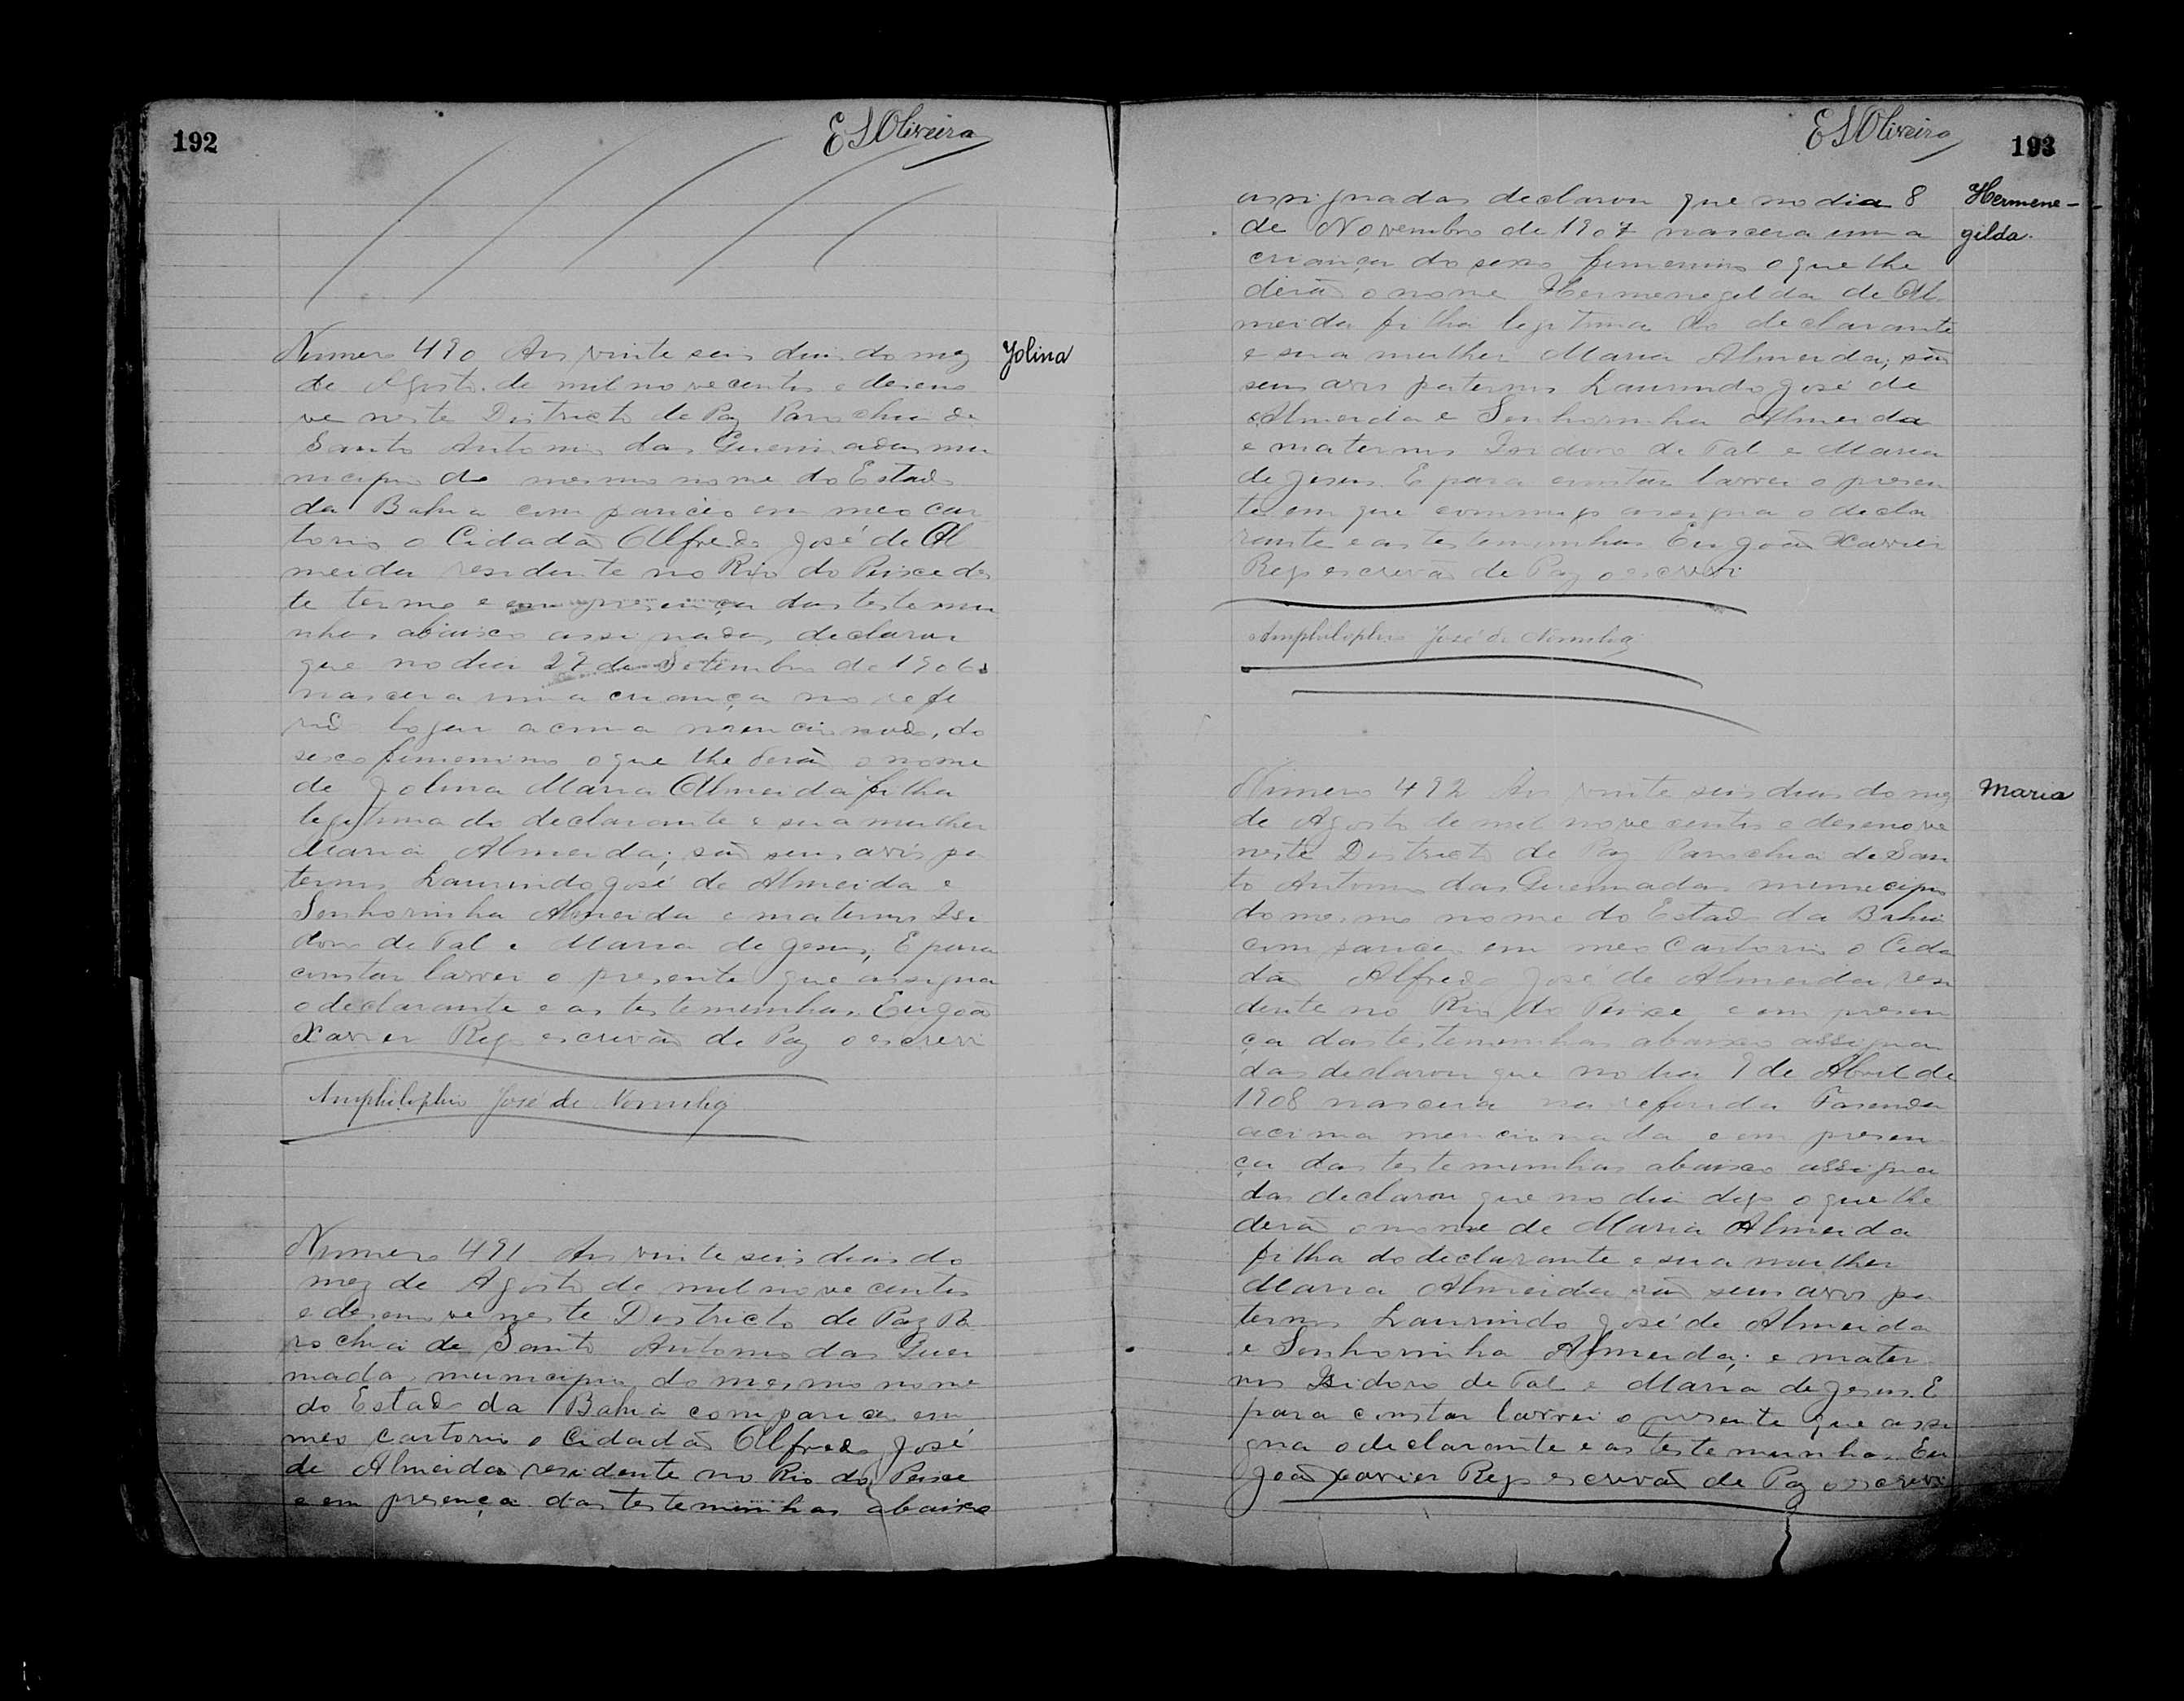 192
E S Oliveira
Numero 490 Aos vinte seis dias do mez
Yolina
de Agosto de mil nove centos e deseno
ve neste Districto de Paz Parochia de
Santo Antonio das Queimadas mu
nicipio do mesmo nome do Estado
da Bahia com pariceo em meo car
torio o Cidadão Alfredo José de Al
meida residente no Rio do Peixe des
te termo e em presença das testemu
nhas abaixo assignadas, declarou
que no dia 27 de Setembro de 1906
nascera uma criança no refe
rido logar acima mencionado, do
sexo femenino o que lhe derão o nome
de Jolina Maria Almeida filha
legitima do declarante e sua mulher
Maria Almeida; são seus avós pa
ternos Laurindo José de Almeida e
Senhorinha Almeida e maternos Isi
doro de Tal e Maria de Jesus, E para
constar lavrei o presente que assigna
o declarante e as testemunhas. Eu João
Xavier Rego escrivão de Paz o escrevi
Amphilophio José de Noronha
Numero 491 Aos vinte seis dias do
mez de Agosto de mil nove centos
e desenove neste Districto de Paz Pa
rochia de Santo Antonio das Quei
madas municipio do mesmo nome
do Estado da Bahia compariceo em
meo cartorio o Cidadão Alfredo José
de Almeida residente no Rio do Peixe
e em presença das testemunhas abaixo
E S Oliveira
193
assignadas declarou que no dia 8
Hermene-
de Novembro de 1907 nascera uma
gilda.
criança do sexo femenino o que lhe
derão o nome Hermenegilda de Al
meida filha legitima do declarante
e sua mulher Maria Almeida; são
seus avos paternos Laurindo José de
Almeida e Senhorinha Almeida
e maternos Isidoro de Tal e Maria
de Jesus. E para constar lavrei o presen
te em que commigo assigna o decla
rante e as testemunhas Eu João Xavier
Rego escrivão de Paz o escrevi
Amphilophio José de Noronha
Numero 492 Aos vinte seis dias do mez
Maria
de Agosto de mil nove centos e desenove
neste Districto de Paz Parochia de San
to Antonio das Queimadas municipio
do mesmo nome do Estado da Bahia
compariceo em meo Cartorio o Cida
dão Alfredo José de Almeida resi
dente no Rio do Peixe e em presen
ça das testemunhas abaixo assigna
das declarou que no dia 9 de Abril de
1908 nascera na referida Fasenda
acima mencionada e em presen
ça das testemunhas abaixo assigna
das declarou que no dia digo o que lhe
derão o nome de Maria Almeida
filha do declarante e sua mulher
Maria Almeida são seus avos pa
ternos Laurindo José de Almeida
e Senhorinha Almeida; e mater
nos Isidoro de Tal e Maria de Jesus. E
para constar lavrei o presente que assi
gna o declarante e as testemunhas. Eu
João Xavier Rego escrivão de Paz o escrevi